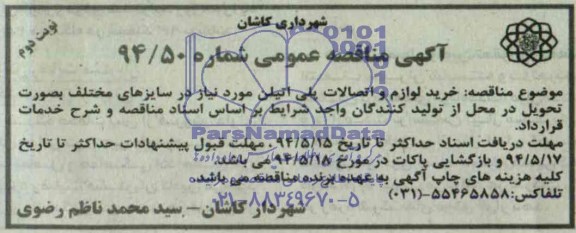 شهرداری کاشان
نوبت دوم
آگهی مناقصه عمومی شماره ۹۴/۵۰
موضوع مناقصه: خرید لوازم و اتصالات پلی اتیلن مورد نیاز در سایزهای مختلف بصورت
تحویل در محل از تولید کنندگان واجد شرایط بر اساس اسناد مناقصه و شرح خدمات
قرارداد.
ParsNamadData
مهلت دریافت اسناد حداکثر تا تاریخ ۹۴/۵/۱۵ ، مهلت قبول پیشنهادات حداکثر تا تاریخ
۹۴/۵/۱۷ و بازگشایی پاکات در مورخ ۹۴/۵/۱۸ می باشد.
کلیه هزینه های چاپ آگهی به عهده برنده مناقصه می باشد.
تلفاکس: ۵۵۴۶۵۸۵۸-(۰۳۱)
۰۲۱-۸۸۳۴۹۶۷۰-۵
شهردار کاشان – سید محمد ناظم رضوی